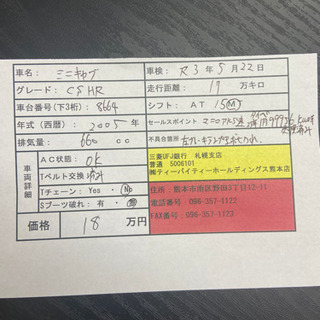 車名：ミニキャブ
車検：R3年5月22日
グレード：CS HR
走行距離：17 万キロ
車台番号(下3桁)：8664
シフト：AT 5M
年式(西暦)：2005年
セールスポイント マニュアル5速
排気量：660 cc
不具合箇所
車両詳細
AC状態：OK
Tベルト交換 済み
Tチェーン：Yes・No
Sブーツ破れ：有・無
三菱UFJ銀行 札幌支店
普通 5006101
㈱ティーバイティーホールディングス熊本店
住所：熊本市南区野田3丁目12-11
電話番号：096-357-1122
FAX番号：096-357-1123
価格 18 万円